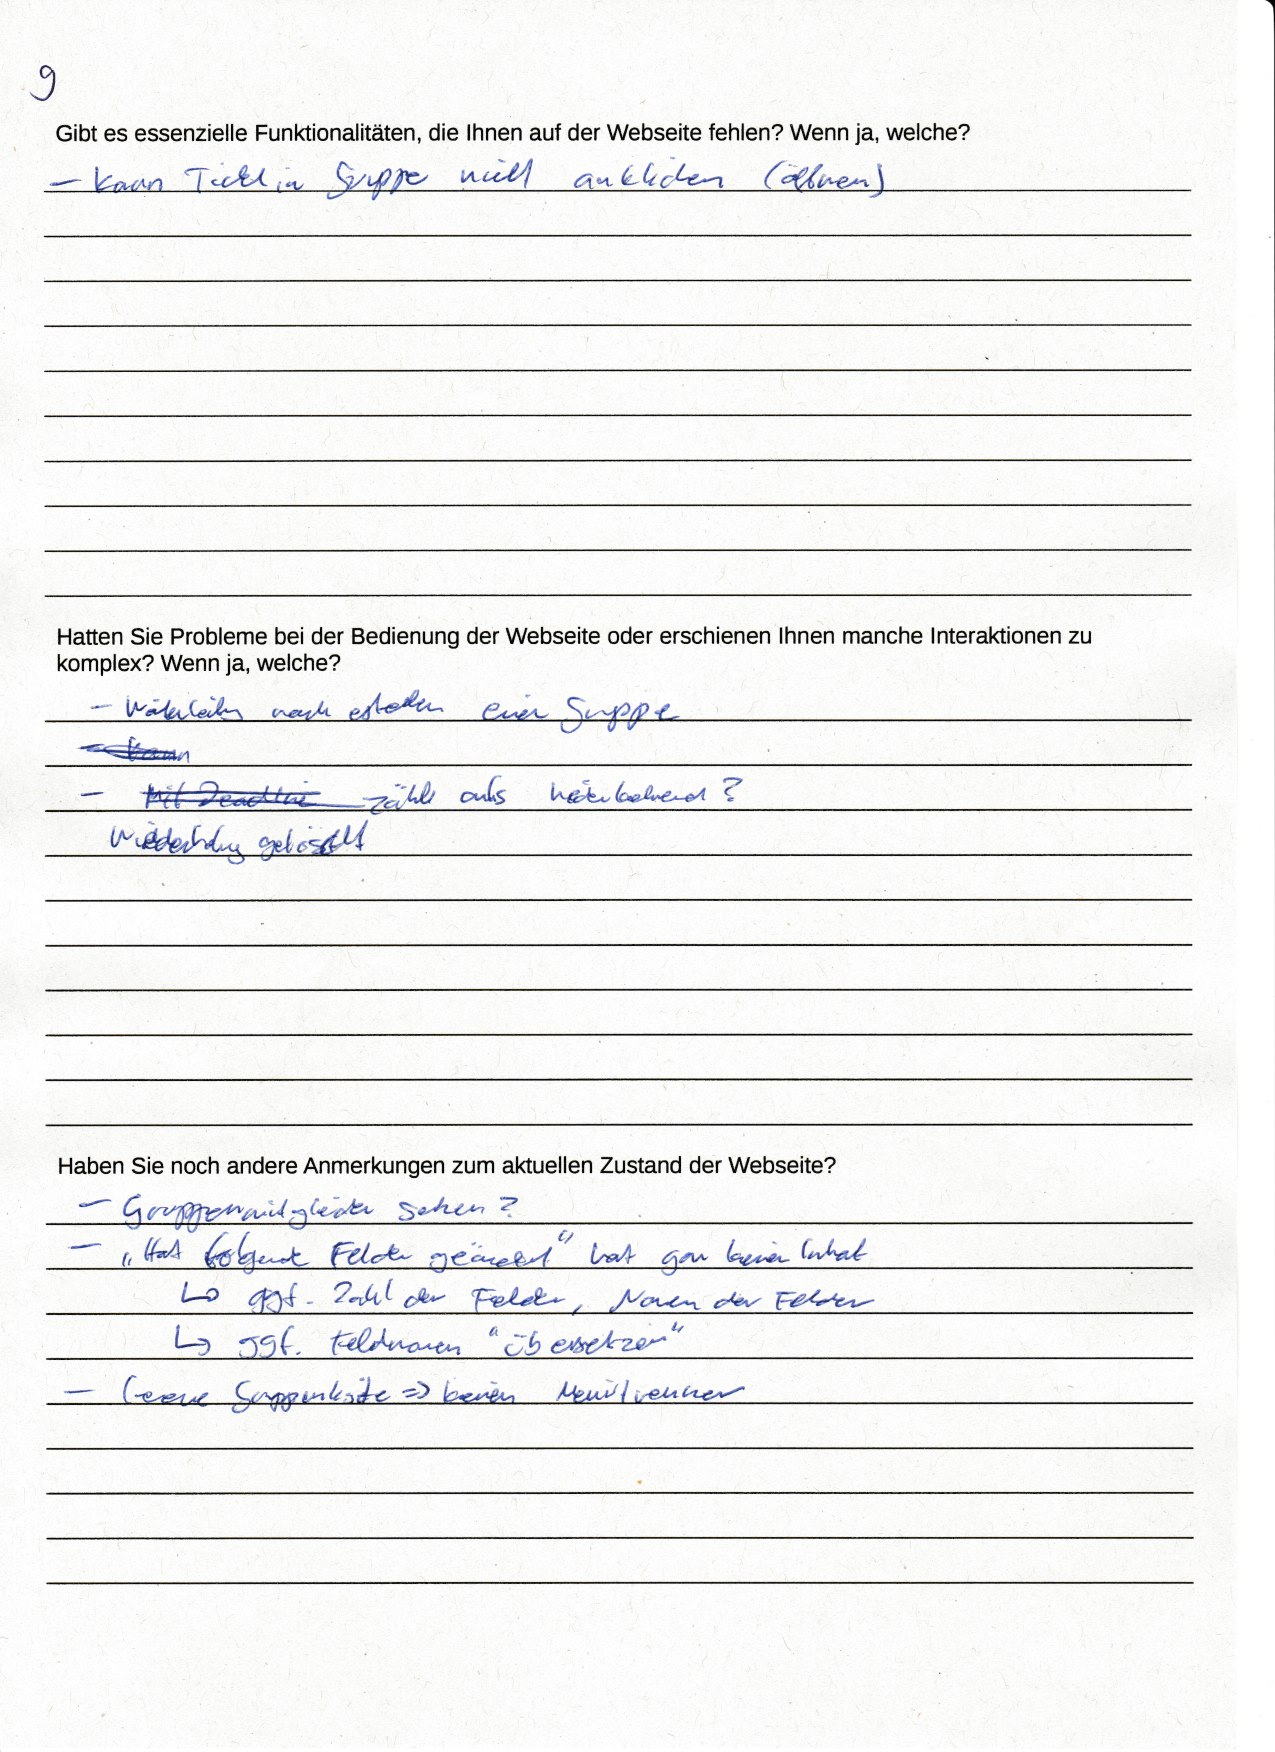 9
Gibt es essenzielle Funktionalitäten, die Ihnen auf der Webseite fehlen? Wenn ja, welche?
- Kann Ticket in Gruppe nicht anklicken (öffnen)
Hatten Sie Probleme bei der Bedienung der Webseite oder erschienen Ihnen manche Interaktionen zu
komplex? Wenn ja, welche?
- Weiterleitung nach erstellen einer Gruppe
kann
- Mit Deadline zählt als wiederkehrend?
Wiederholung gelöscht
Haben Sie noch andere Anmerkungen zum aktuellen Zustand der Webseite?
- Gruppenmitglieder sehen?
- „Hat folgende Felder geändert" hat gar keinen Inhalt
↳ ggf. Zahl der Felder, Namen der Felder
↳ ggf. Feldnamen "übersetzen"
- Leere Gruppenliste => keinen Menütrenner